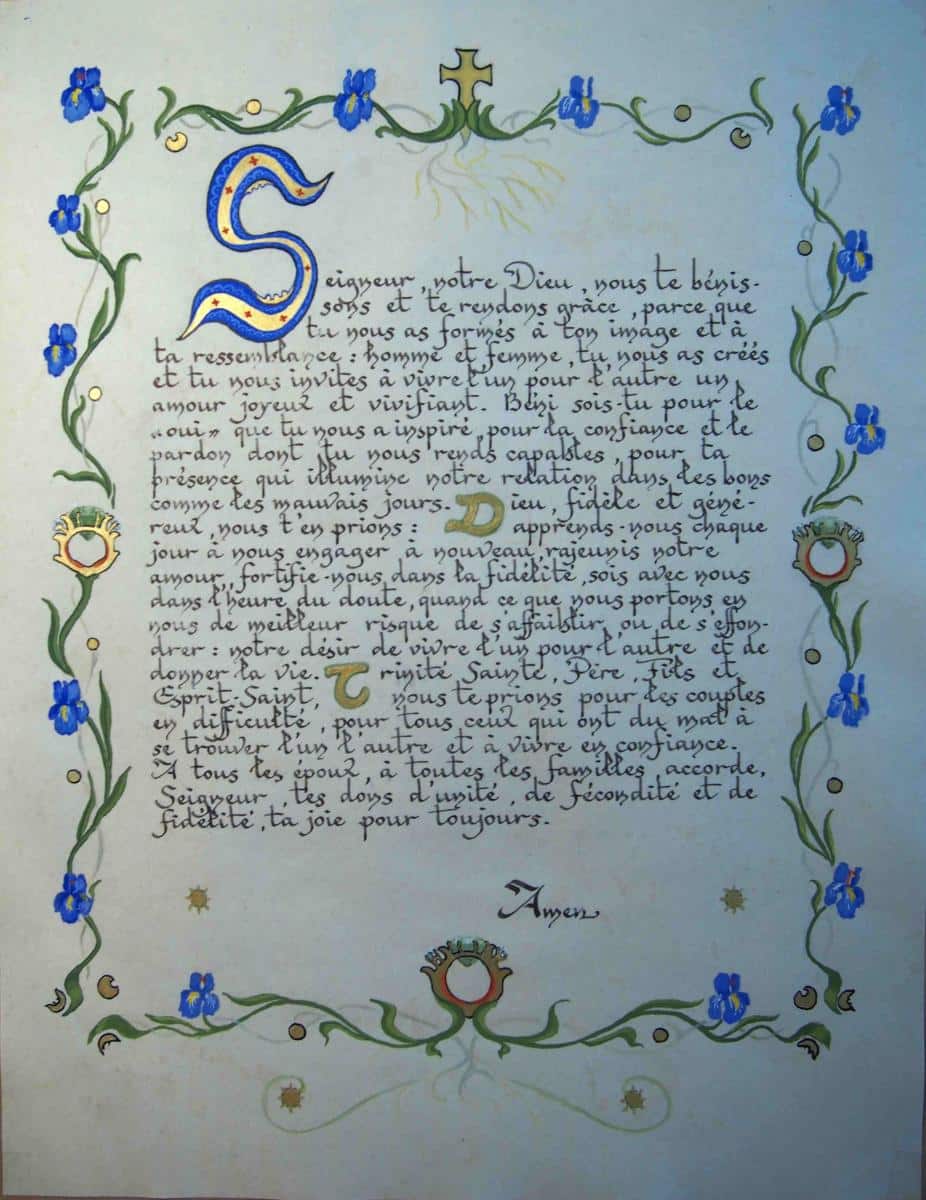 Seigneur, notre Dieu, nous te bénis-
sons et te rendons grâce, parce que
tu nous as formés à ton image et à
ta ressemblance : homme et femme, tu nous as créés
et tu nous invites à vivre l'un pour l'autre un
amour joyeux et vivifiant. Béni sois-tu pour le
«oui» que tu nous a inspiré, pour la confiance et le
pardon dont tu nous rends capables, pour ta
présence qui illumine notre relation dans les bons
comme les mauvais jours. Dieu, fidèle et géné-
reux, nous t'en prions : apprends-nous chaque
jour à nous engager à nouveau, rajeunis notre
amour, fortifie-nous dans la fidélité, sois avec nous
dans l'heure du doute, quand ce que nous portons en
nous de meilleur risque de s'affaiblir ou de s'effon-
drer : notre désir de vivre l'un pour l'autre et de
donner la vie. Trinité Sainte, Père, Fils et
Esprit-Saint, nous te prions pour les couples
en difficulté, pour tous ceux qui ont du mal à
se trouver l'un l'autre et à vivre en confiance.
A tous les époux, à toutes les familles, accorde,
Seigneur, tes dons d'unité, de fécondité et de
fidélité, ta joie pour toujours.
Amen